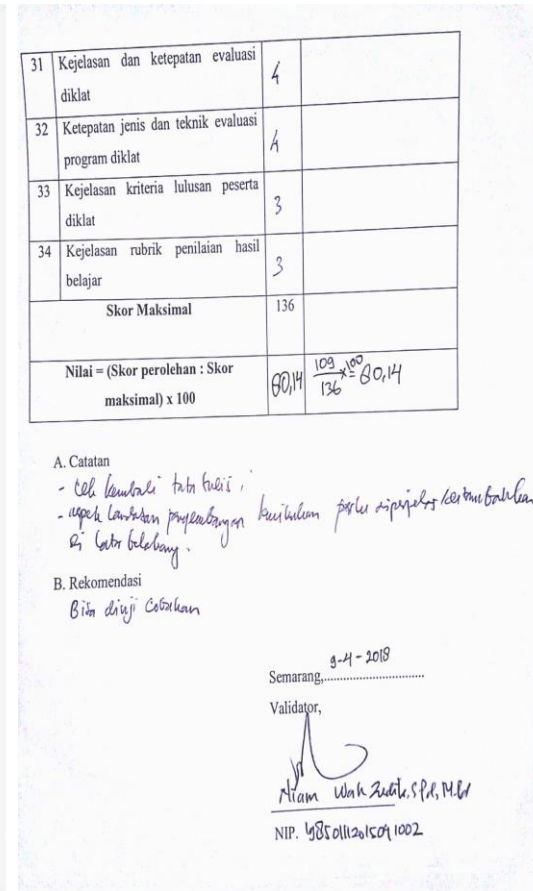 31 Kejelasan dan ketepatan evaluasi 4
diklat
32 Ketepatan jenis dan teknik evaluasi 4
program diklat
33 Kejelasan kriteria lulusan peserta 3
diklat
34 Kejelasan rubrik penilaian hasil 3
belajar
Skor Maksimal 136
Nilai = (Skor perolehan : Skor
maksimal) x 100
80,14 109/136 x 100 = 80,14
A. Catatan
- Cek kembali tata tulis,
- aspek landasan pengembangan kurikulum perlu diperjelas
di latar belakang.
B. Rekomendasi
Bisa diuji cobakan
9-4-2018
Semarang,..............................
Validator,
Niam S.Pd, M.Pd
NIP.